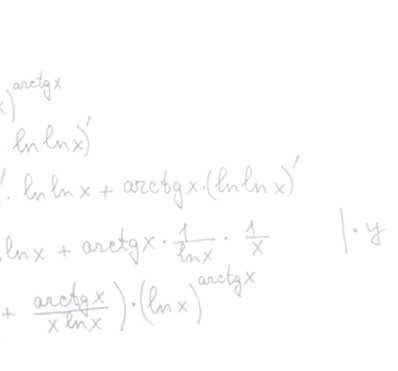 x)^arctgx
ln ln x)'
'. ln ln x + arctg x·(ln ln x)'
. ln x + arctg x · 1/ln x · 1/x |· y
+ arctg x/x ln x)·(ln x)^arctgx